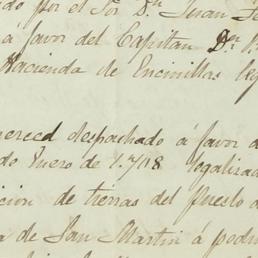 do por el Sor Dn Juan
a favor del Capitan Dn
Hacienda de Encinillas
merced despachado á favor
do Enero de 1718 legalizad
cion de tierras del Pueblo
de San Martin á